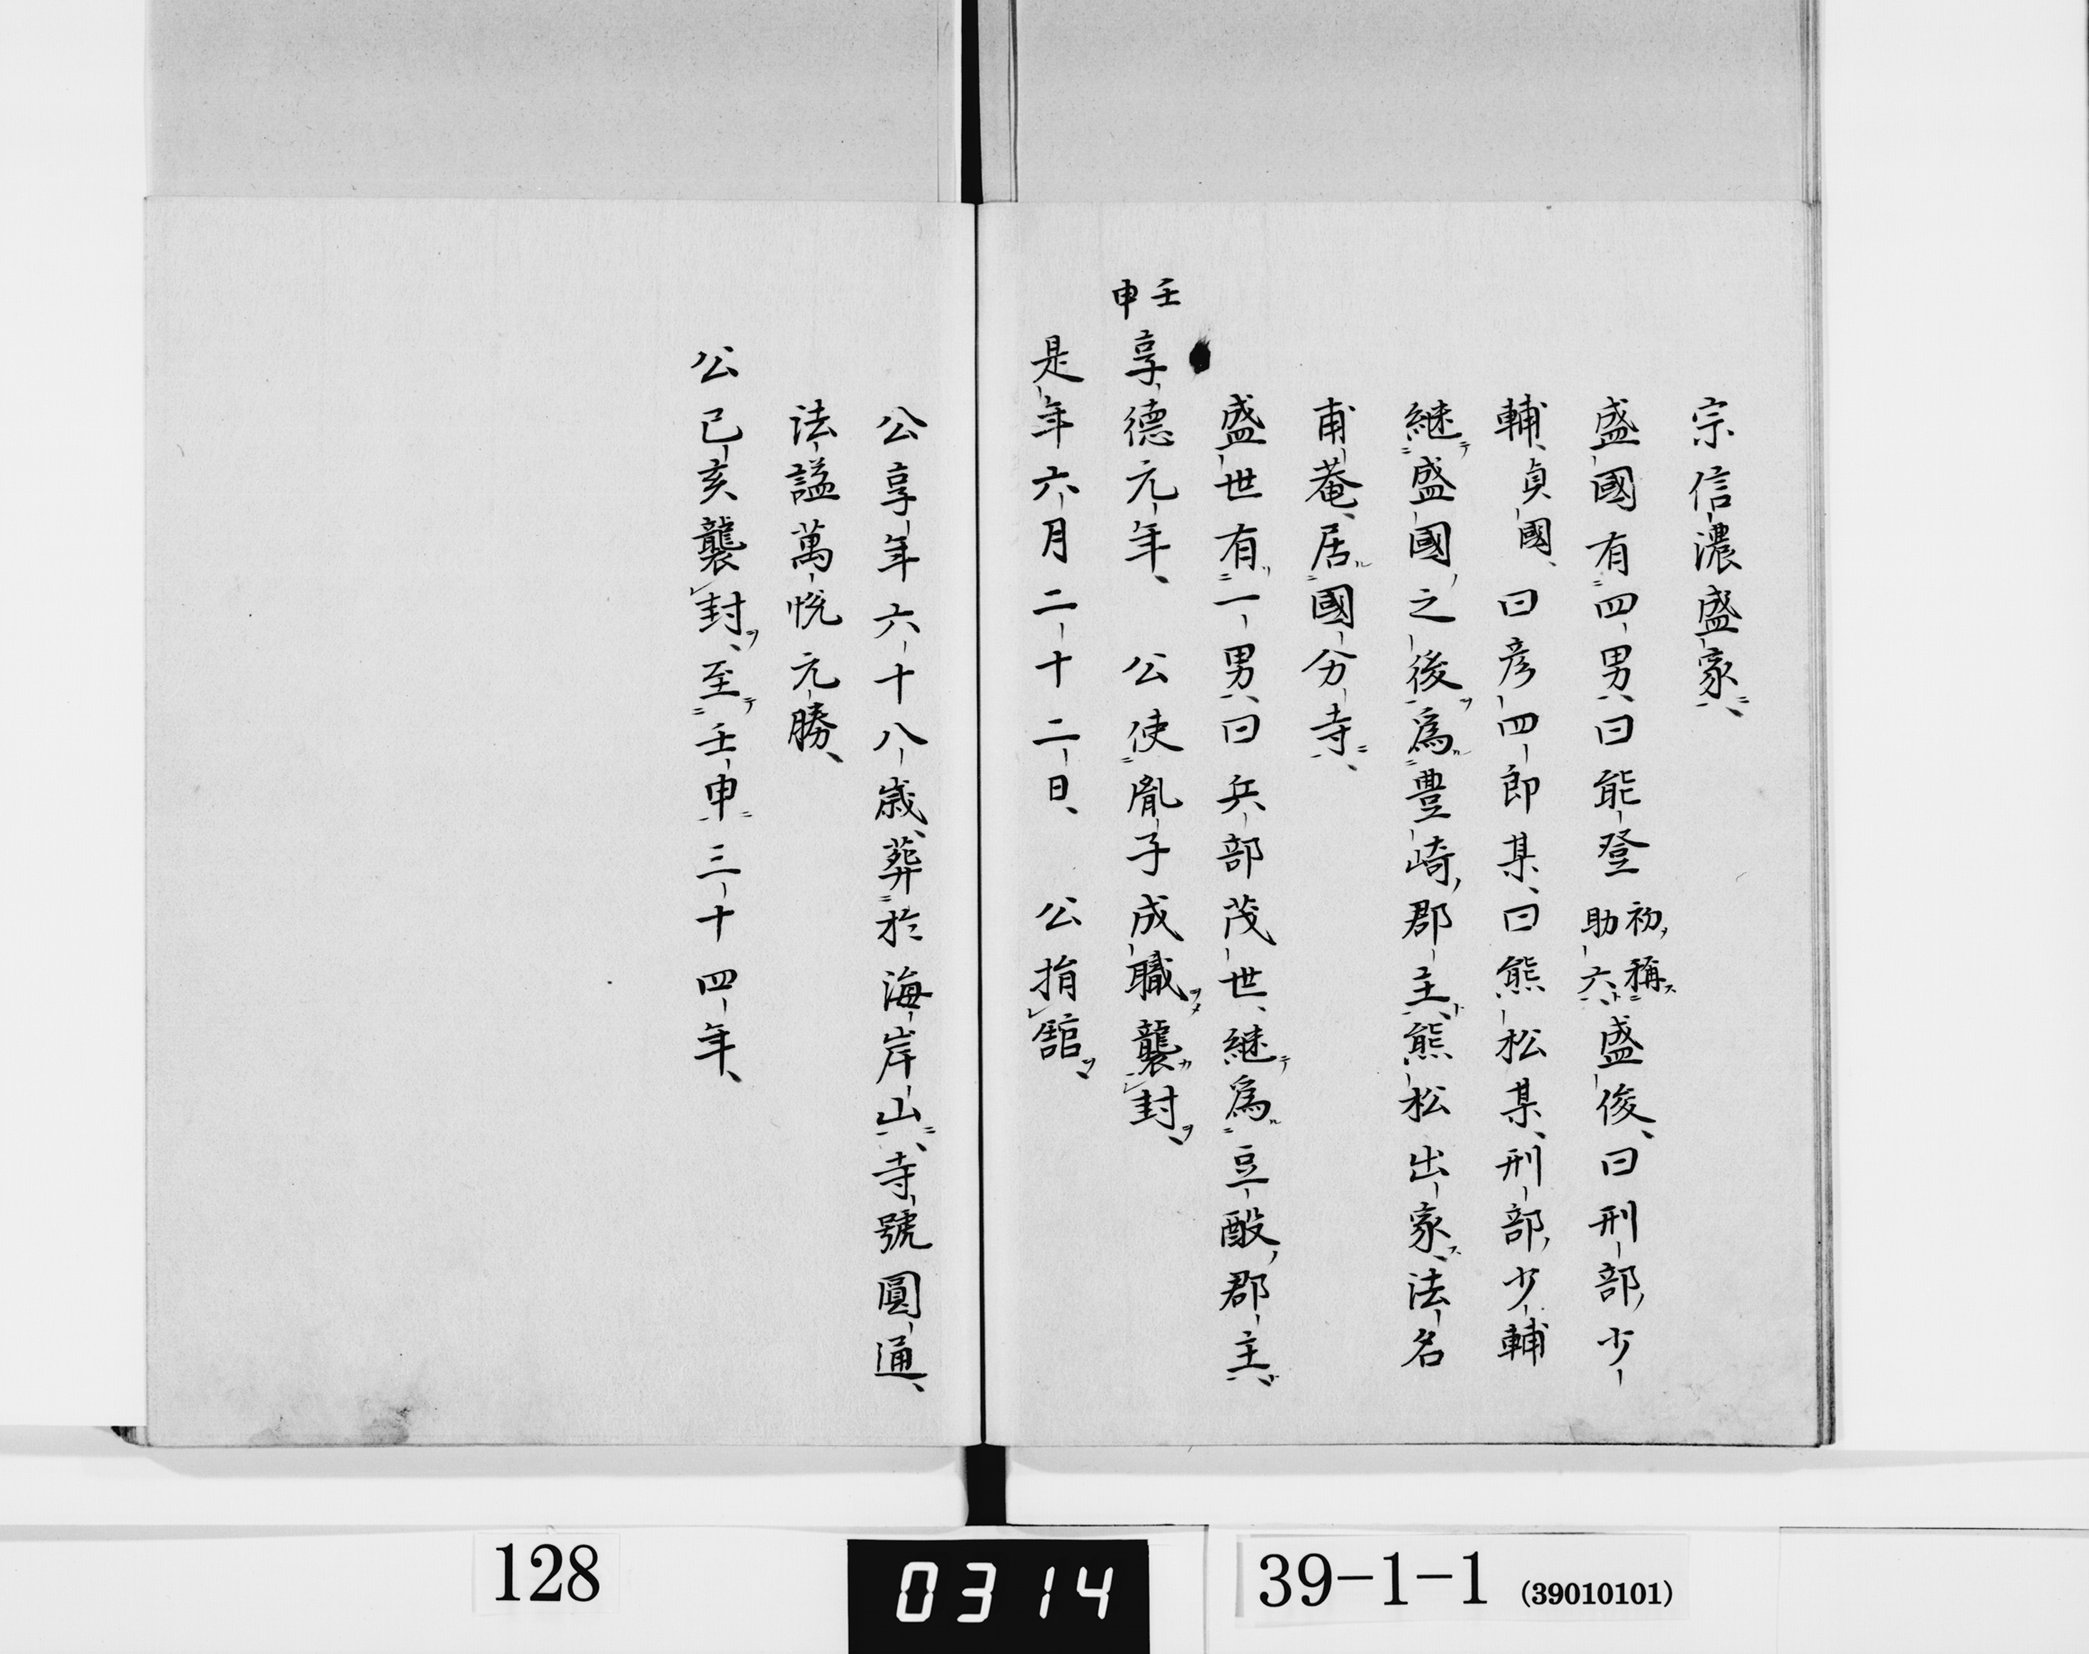 宗信濃盛家、
盛國有四男、曰能登初稱助六盛俊、曰刑部少
輔貞國、曰彦四郎某、曰熊松某、刑部少輔
継盛國之後爲豊崎郡主、熊松出家、法名
甫菴、居國分寺、
盛世有一男、曰兵部茂世、継爲豆酘郡主、
壬申
享德元年、公使胤子成職襲封、
是年六月二十二日、公捐舘、
公享年六十八歳、葬於海岸山、寺號圓通、
法謚萬悦元勝、
公己亥襲封、至壬申三十四年、
128
0314
39-1-1 (39010101)